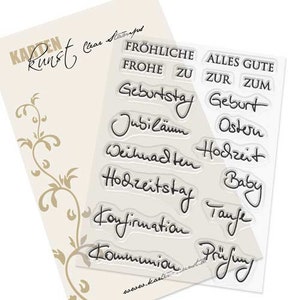 KARTEN
Kunst Clear Stamps
FRÖHLICHE ALLES GUTE
FROHE ZU ZUR ZUM
Geburtstag Geburt
Jubiläum Ostern
Weihnachten Hochzeit
Hochzeitstag Baby
Konfirmation Taufe
Kommunion Prüfung